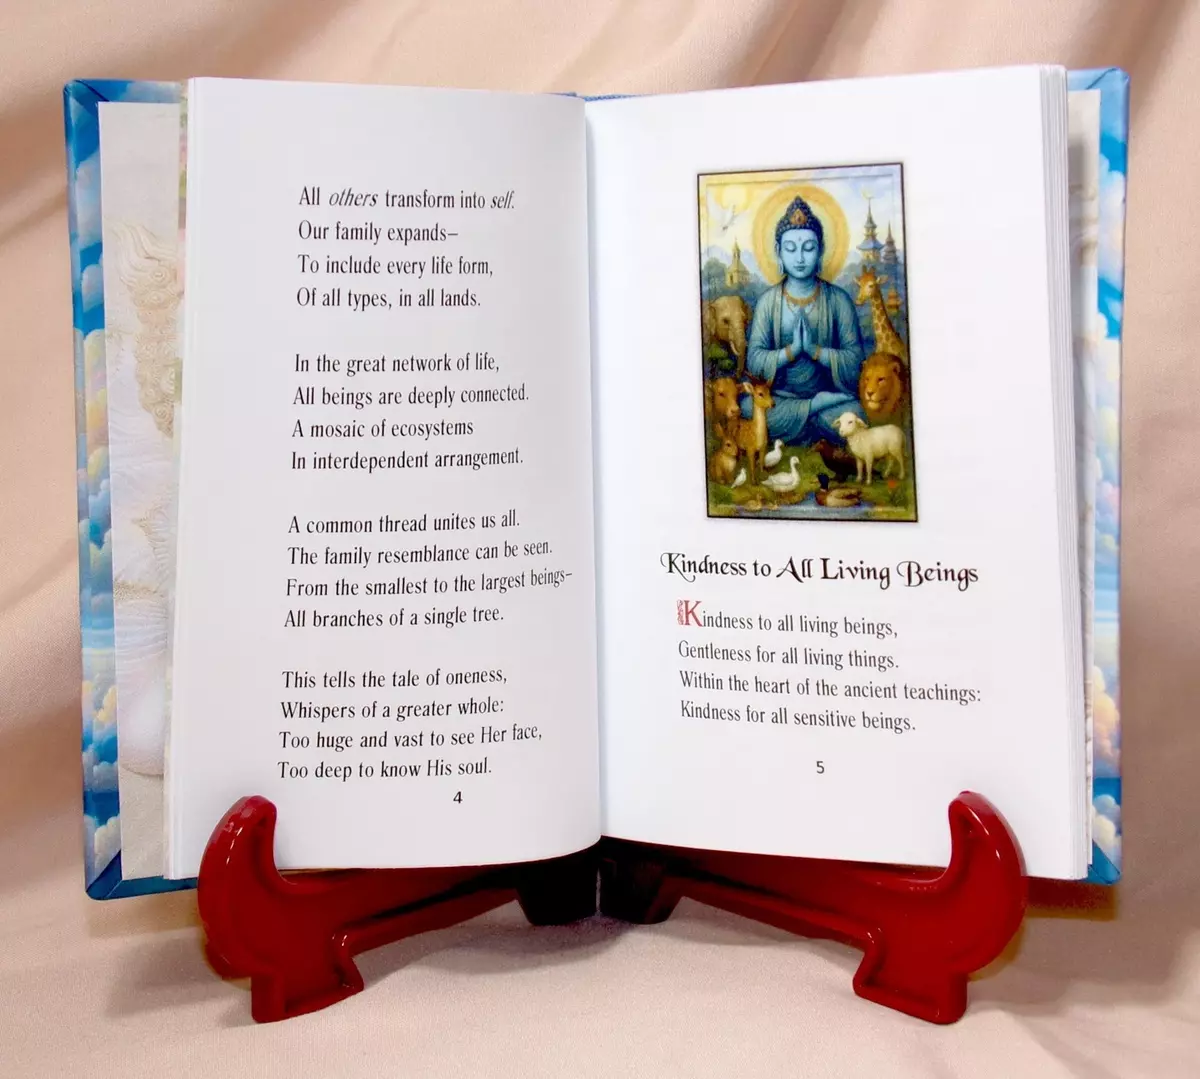 All others transform into self.
Our family expands–
To include every life form,
Of all types, in all lands.
In the great network of life,
All beings are deeply connected.
A mosaic of ecosystems
In interdependent arrangement.
A common thread unites us all.
The family resemblance can be seen.
From the smallest to the largest beings–
All branches of a single tree.
This tells the tale of oneness,
Whispers of a greater whole:
Too huge and vast to see Her face,
Too deep to know His soul.
4
Kindness to All Living Beings
Kindness to all living beings,
Gentleness for all living things.
Within the heart of the ancient teachings:
Kindness for all sensitive beings.
5